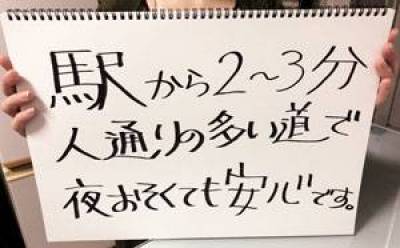 駅から2〜3分
人通りの多い道で
夜おそくても安心です。